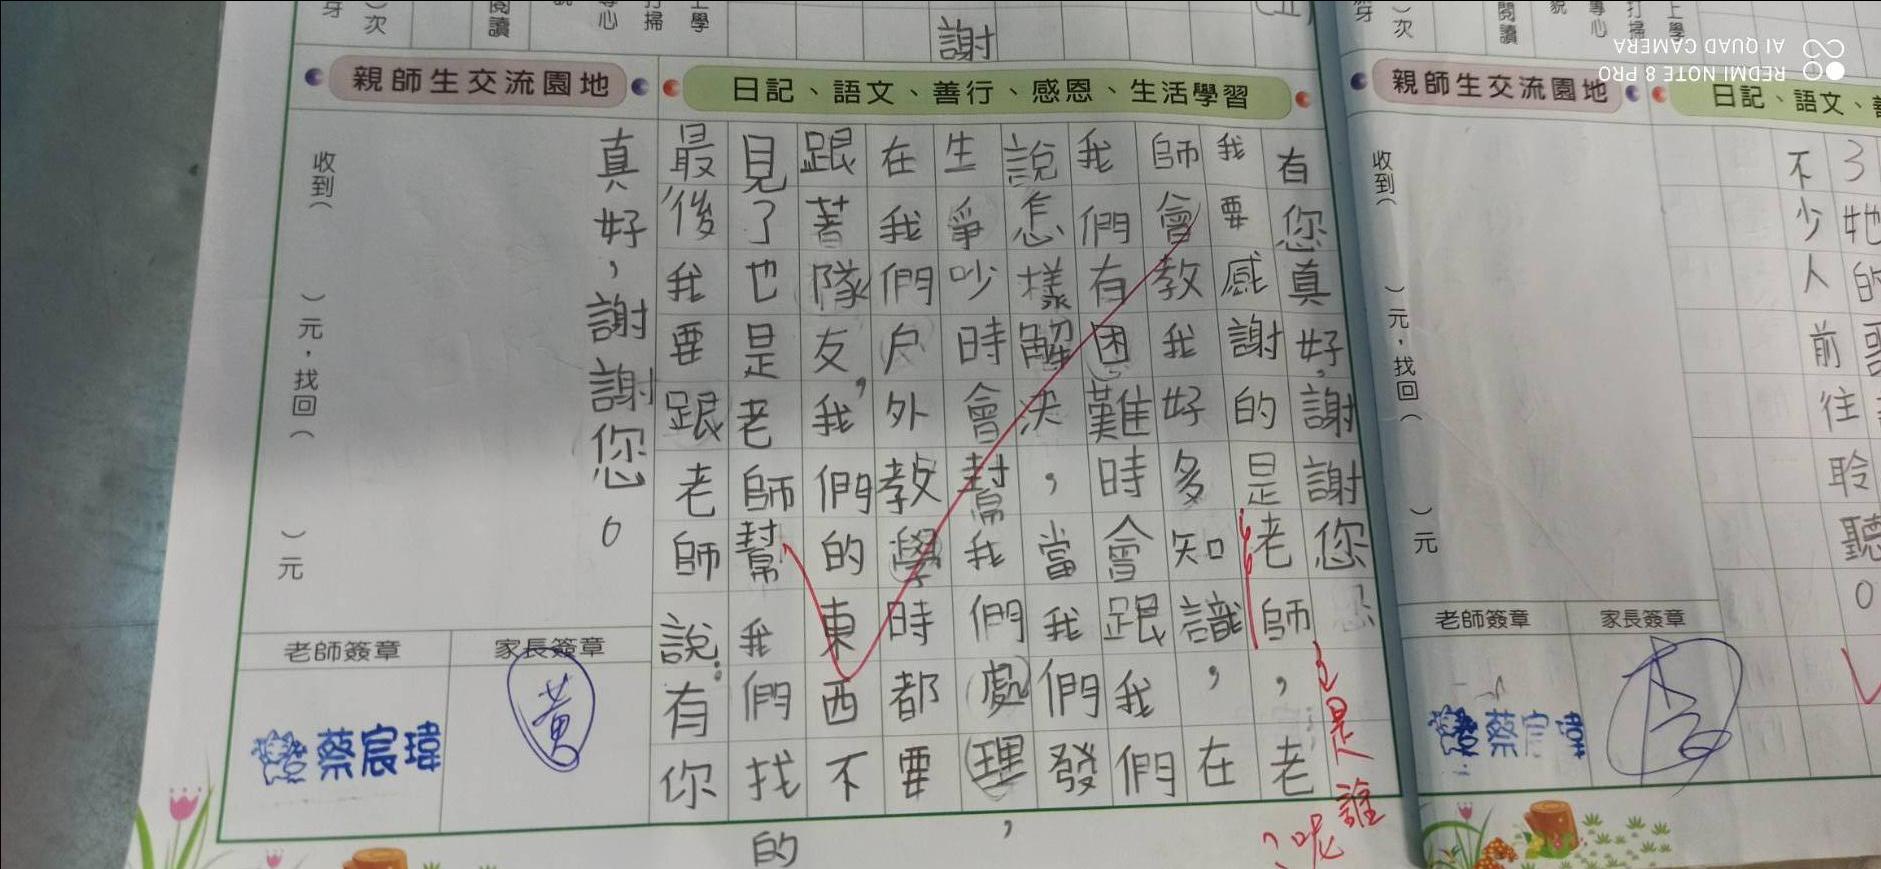 謝
親師生交流園地
日記、語文、善行、感恩、生活學習
有您真好,謝謝您
我要感謝的是老師,老
師會教我好多知識,在
我們有困難時會跟我們
說怎樣解決,當我們發
生爭吵時會幫我們處理,
在我們戶外教學時都要
跟著隊友,我們的東西不
見了也是老師幫我們找的
最後我要跟老師說:有你
真好,謝謝您。
是誰
呢?
收到( )元,找回( )元
老師簽章
家長簽章
蔡宸瑋
黃
親師生交流園地
日記、語文、
收到( )元,找回( )元
不少人前往聆聽。
老師簽章
家長簽章
蔡宸瑋
REDMI NOTE 8 PRO
AI QUAD CAMERA